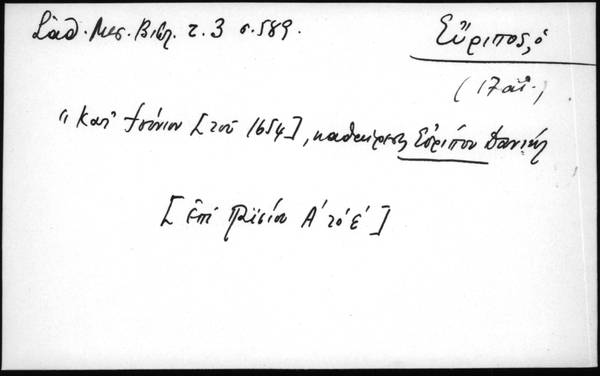 Σάθ. Μεσ. Βιβλ. τ. 3 σ. 589.
Εὔριπος, ὁ
(17 αἰ.)
"Κατ' Ἰούνιον [τοῦ 1654], καθαίρεσις Εὐρίπου Δανιήλ
[ἐπὶ Παϊσίου Α' τὸ ε']